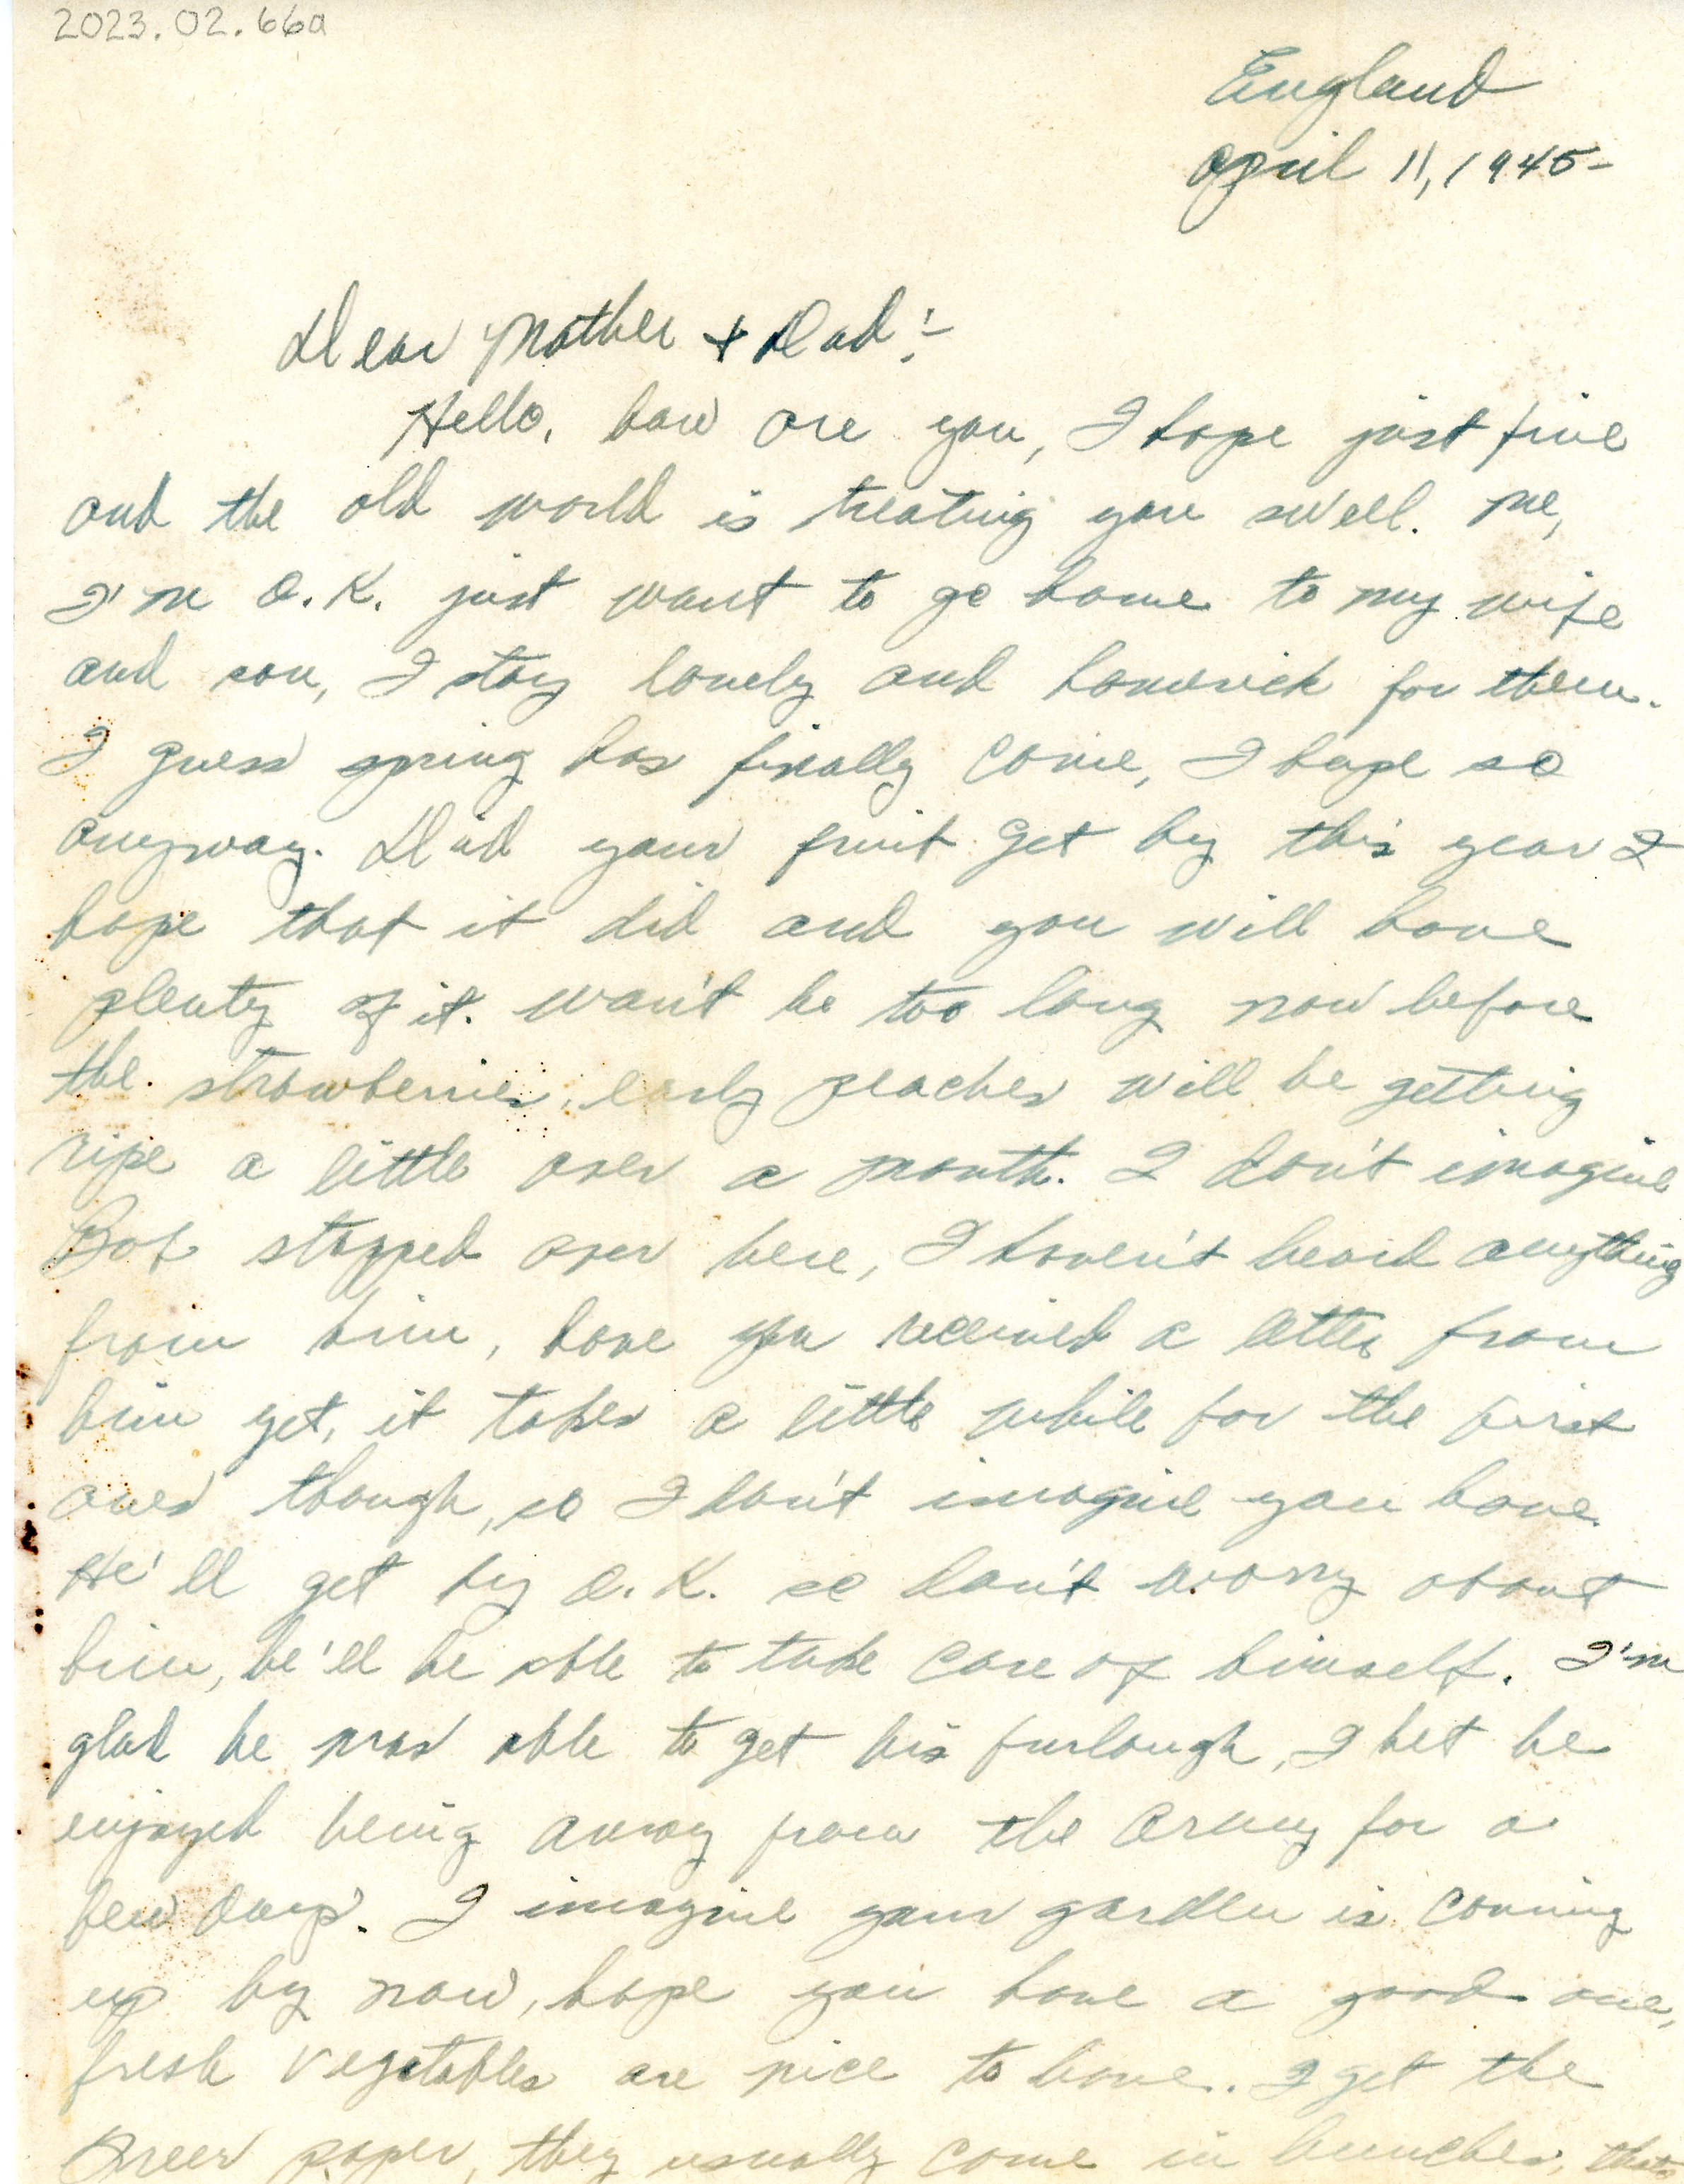 2023.02.66a
England
April 11, 1945-
Dear Mother + Dad:-
Hello, how are you, I hope just fine
and the old world is treating you swell. Me,
I'm O.K. just want to go home to my wife
and son, I stay lonely and homesick for them.
I guess spring has finally come, I hope so
anyway. Did your fruit get by this year I
hope that it did and you will have
plenty of it. Won't be too long now before
the strawberries, early peaches will be getting
ripe a little over a month. I don't imagine
Bob stopped over here, I haven't heard anything
from him, have you received a letter from
him yet, it takes a little while for the first
ones though, so I don't imagine you have.
He'll get by O.K. so don't worry about
him, he'll be able to take care of himself. I'm
glad he was able to get his furlough, I bet he
enjoyed being away from the Army for a
few days. I imagine your garden is coming
up by now, hope you have a good one,
fresh vegetables are nice to have. I get the
Greer paper, they usually come in bunches, thats